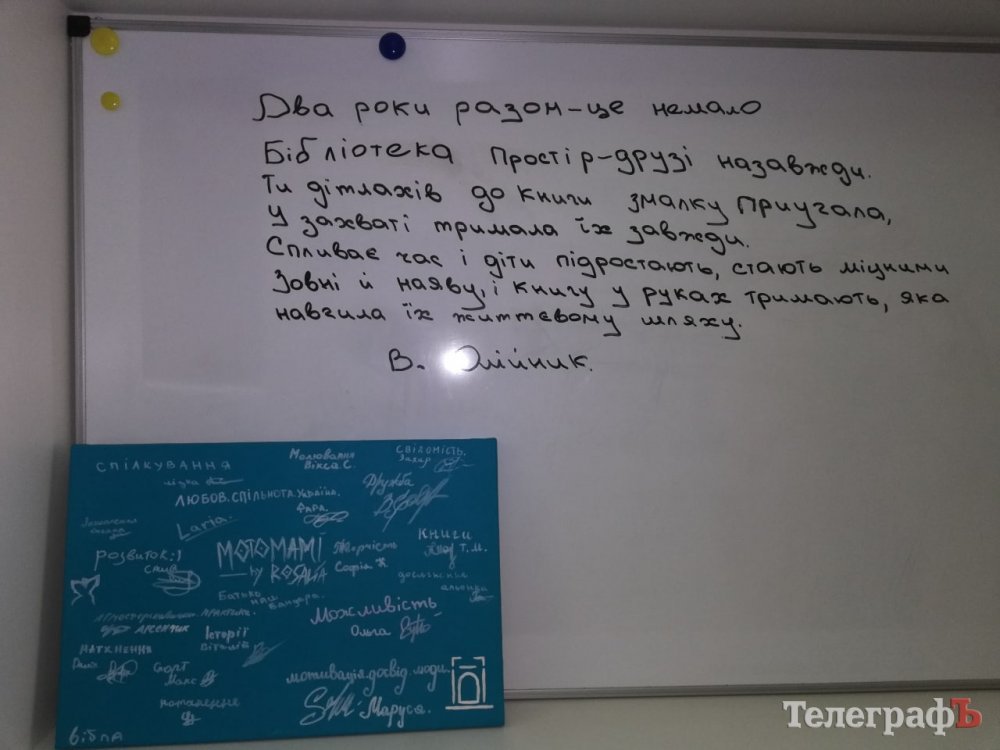 Два роки разом-це немало
Бібліотека Простір-друзі назавжди.
Ти дітлахів до книги змалку приучала,
У захваті тримала їх завжди.
Спливає час і діти підростають, стають міцними
Зовні й наяву, і книгу у руках тримають, яка
навчила їх життєвому шляху.
В. Олійник.
СПІЛКУВАННЯ
Малювання
Вікса С.
СВІДОМІСТЬ.
Захар
ЛЮБОВ.СПІЛЬНОТА.Україна.
ФАРА.
Дружба
Laria.
РОЗВИТОК:)
САША
MOTOMAMI
by ROSALÍA
Творчість
Софія
Книги
Т.М.
Батько наш Бандера.
Можливість
Ольга
АРСЕНТИК
Історії
Віталій
НАТХНЕННЯ
Спорт
Макс
мотивація.досвід.люди.
Маруся.
ТелеграфЪ